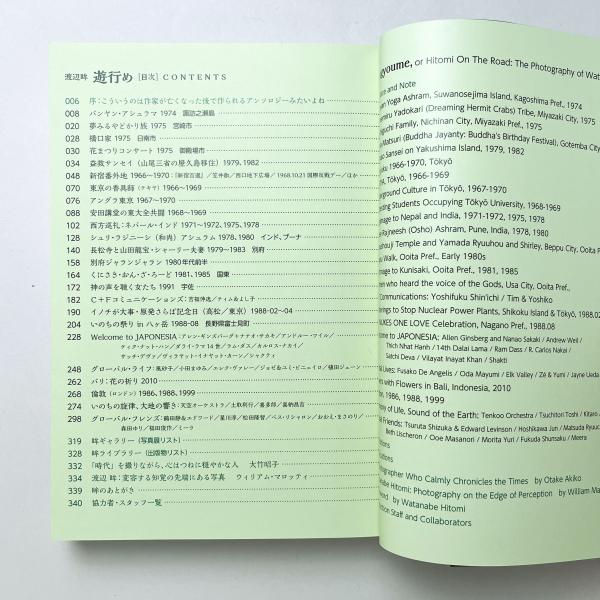 渡辺眸 遊行め [目次] CONTENTS
006 序：こういうのは作家が亡くなった後で作られるアンソロジーみたいよね
008 バンヤン・アシュラマ 1974 諏訪之瀬島
020 夢みるやどかり族 1975 宮崎市
028 樋口家 1975 日南市
030 花まつりコンサート 1975 御殿場市
034 益救サンセイ（山尾三省の屋久島移住）1979、1982
048 新宿番外地 1966〜1970：「新宿百選」／笠井叡／西口地下広場／1968.10.21国際反戦デー／ほか
070 東京の香具師（テキヤ）1966〜1969
076 アングラ東京 1967〜1970
088 安田講堂の東大全共闘 1968〜1969
102 西方巡礼：ネパール・インド 1971〜1972、1975、1978
128 シュリ・ラジニーシ（和尚）アシュラム 1978、1980 インド、プーナ
140 長松寺と山田龍宝・シャーリー夫妻 1979〜1983 別府
158 別府ジャランジャラン 1980年代前半
164 くにさき・おん・ざ・ろーど 1981、1985 国東
172 神の声を聴く女たち 1991 宇佐
182 C＋Fコミュニケーションズ：吉福伸逸／ティム&よし子
190 イノチが大事・原発さらば記念日（高松／東京）1988-02〜04
204 いのちの祭り in 八ヶ岳 1988-08 長野県富士見町
228 Welcome to JAPONESIA：アレン・ギンズバーグ＋ナナオ・サカキ／アンドルー・ワイル／
ティク・ナット・ハン／ダライ・ラマ14世／ラム・ダス／カルロス・ナカイ／
サッチ・デヴァ／ヴィラヤット・イナヤット・カーン／シャクティ
248 グローバル・ライフ：風砂子／小田まゆみ／エルク・ヴァレー／ジョゼ&ユミ・ピニェイロ／植田ジューン
262 バリ：花の祈り 2010
268 倫敦（ロンドン）1986、1988、1999
274 いのちの旋律、大地の響き：天空オーケストラ／土取利行／喜多郎／喜納昌吉
298 グローバル・フレンズ：鶴田静&エドワード／星川淳／松田隆智／ベス・リシャロン／おおえ・まさのり／
森田ゆり／福田俊作／ミーラ
319 眸ギャラリー（写真展リスト）
328 眸ライブラリー（出版物リスト）
332 「時代」を撮りながら、心はつねに穏やかな人 大竹昭子
334 渡辺 眸：変容する知覚の先端にある写真 ウィリアム・マロッティ
339 眸のあとがき
340 協力者・スタッフ一覧
gyoume, or Hitomi On The Road: The Photography of Wat
and Note
Yoga Ashram, Suwanosejima Island, Kagoshima Pref., 1974
miru Yadokari (Dreaming Hermit Crabs) Tribe, Miyazaki City, 1975
guchi Family, Nichinan City, Miyazaki Pref., 1975
Matsuri (Buddha Jayanty: Buddha's Birthday Festival), Gotemba City
Sansei on Yakushima Island, 1979, 1982
1966-1970, Tōkyō
Tōkyō, 1966-1969
ground Culture in Tōkyō, 1967-1970
Students Occupying Tōkyō University, 1968-1969
mage to Nepal and India, 1971-1972, 1975, 1978
Rajneesh (Osho) Ashram, Pune, India, 1978, 1980
houji Temple and Yamada Ryuuhou and Shirley, Beppu City, Ooita
Walk, Ooita Pref., Early 1980s
mage to Kunisaki, Ooita Pref., 1981, 1985
men who heard the voice of the Gods, Usa City, Ooita Pref.,
Communications: Yoshifuku Shin'ichi / Tim & Yoshiko
erings to Stop Nuclear Power Plants, Shikoku Island & Tōkyō, 1988.02
NUKES ONE LOVE Celebration, Nagano Pref., 1988.08
ome to JAPONESIA; Allen Ginsberg and Nanao Sakaki / Andrew Weil /
Thich Nhat Hanh / 14th Dalai Lama / Ram Dass / R. Carlos Nakai /
Satchi Deva / Vilayat Inayat Khan / Shakti
Lives: Fusako De Angelis / Oda Mayumi / Elk Valley / Zé & Yumi / Jayne Ueda
with Flowers in Bali, Indonesia, 2010
1986, 1988, 1999
of Life, Sound of the Earth; Tenkoo Orchestra / Tsuchitori Toshi / Kitaro
Friends; Tsuruta Shizuka & Edward Levinson / Hoshikawa Jun / Matsuda Ryuuc
Beth Lischeron / Ooe Masanori / Morita Yuri / Fukuda Shunsaku / Meera
grapher Who Calmly Chronicles the Times by Otake Akiko
Hitomi: Photography on the Edge of Perception by William Ma
by Watanabe Hitomi
Staff and Collaborators